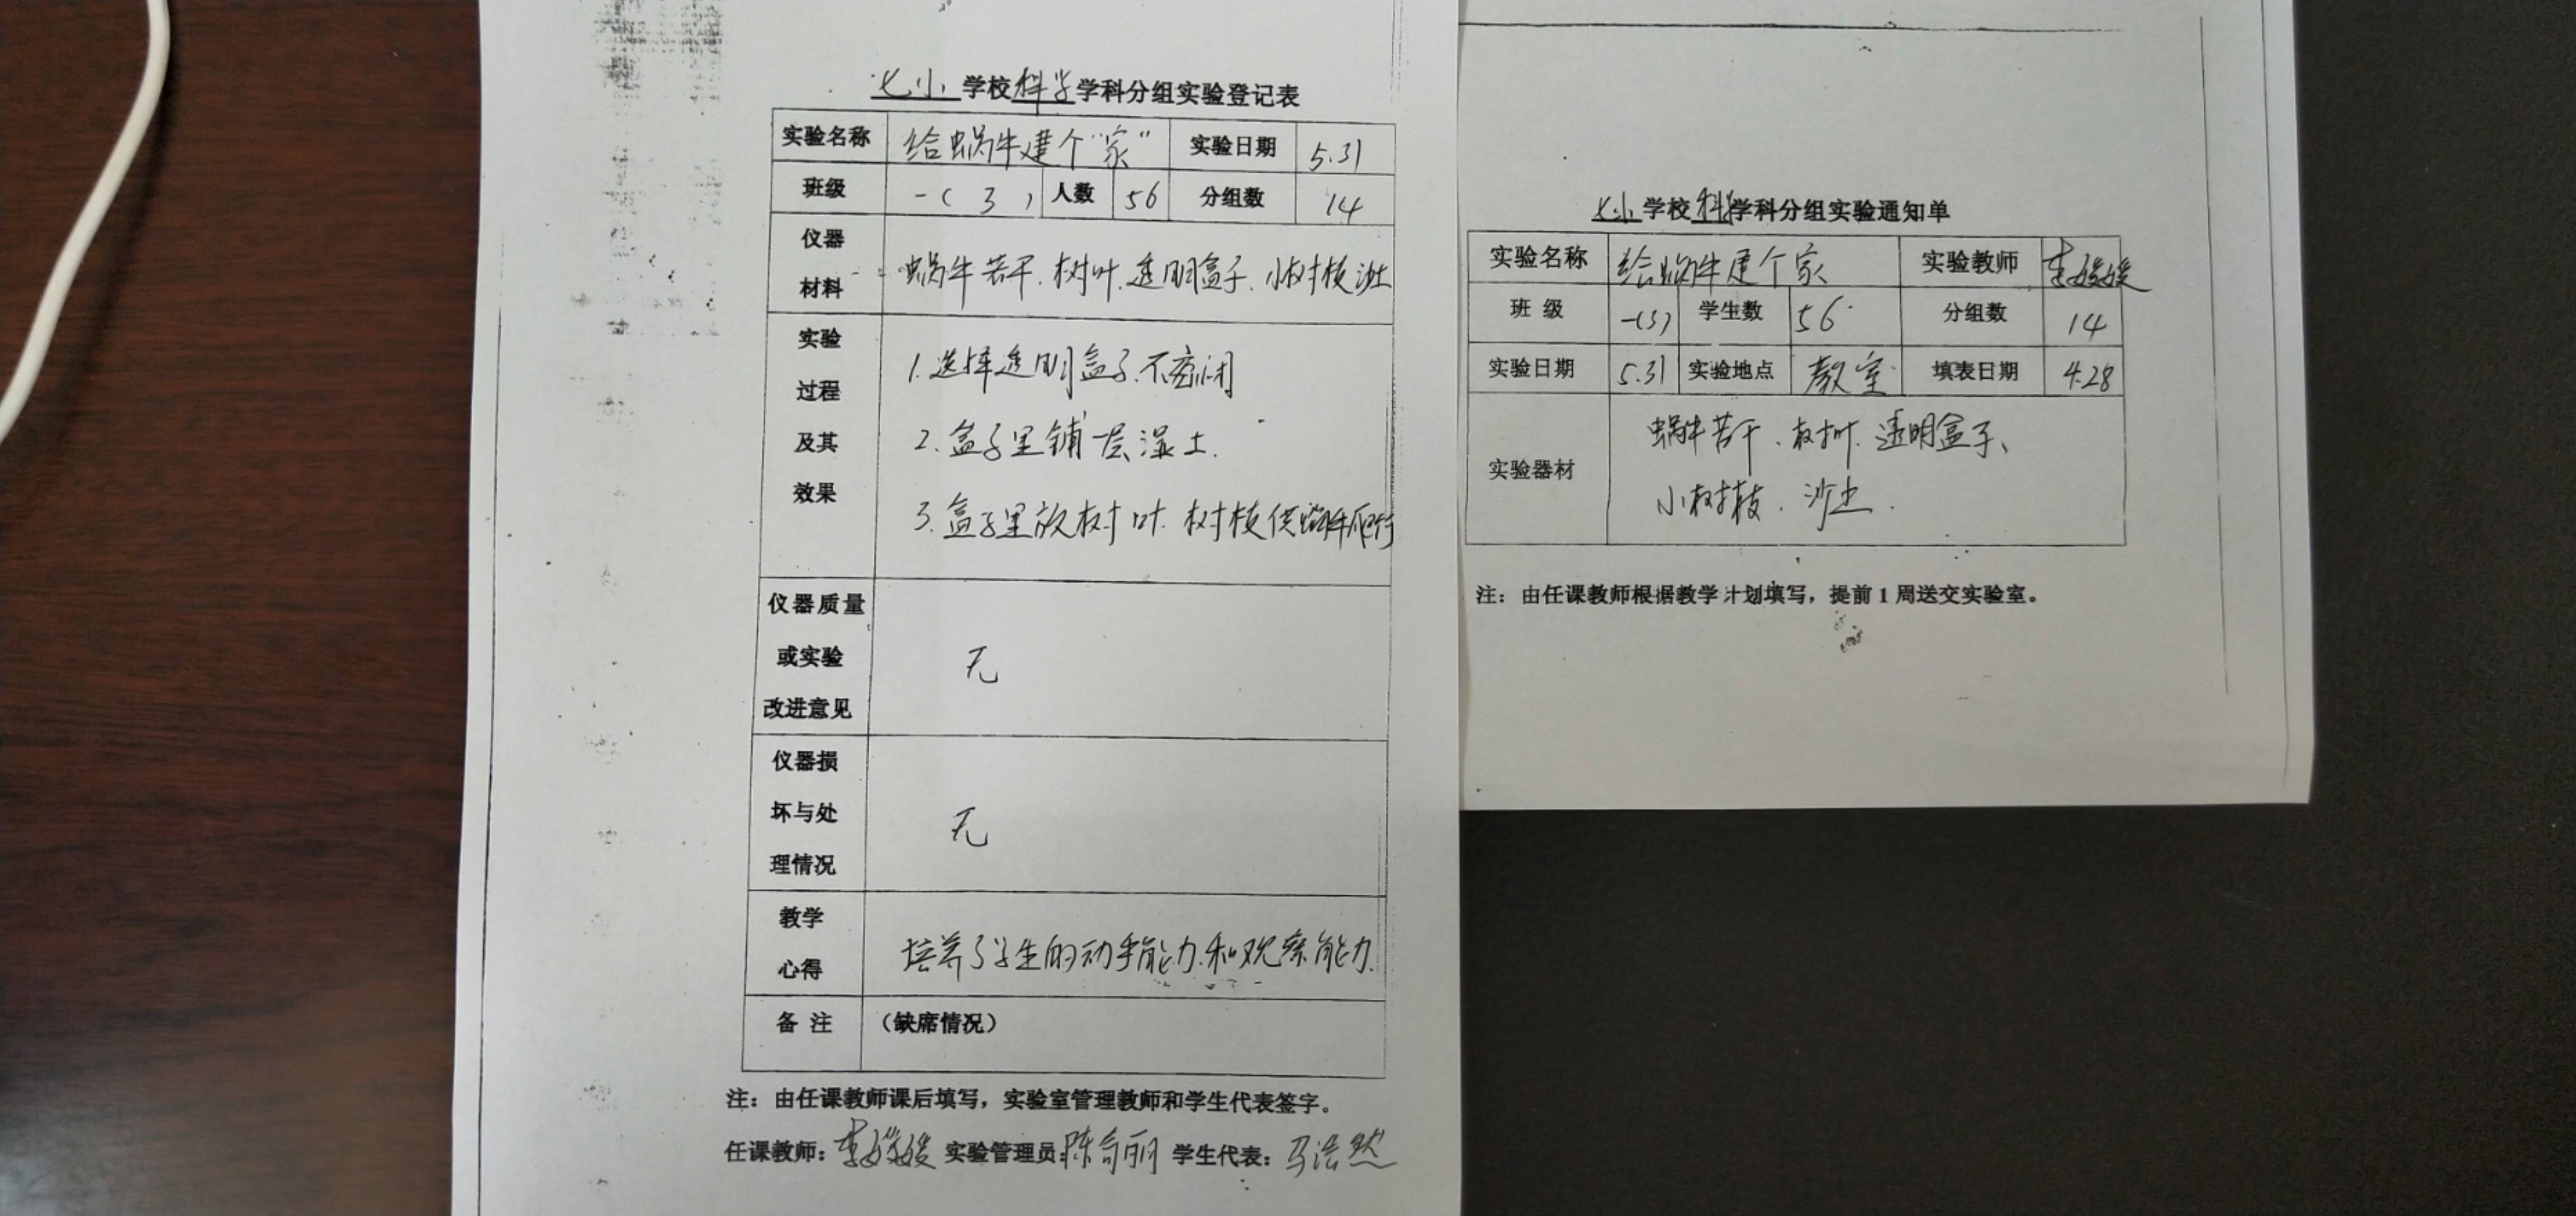 七小学校科学学科分组实验登记表
实验名称 给蜗牛建个“家” 实验日期 5.31
班级 一(3) 人数 56 分组数 14
仪器材料 蜗牛若干、树叶、透明盒子、小树枝、沙土
实验过程及其效果
1.选择透明盒子.不密闭
2.盒子里铺一层湿土.
3.盒子里放树叶.树枝供蜗牛爬行
仪器质量或实验改进意见 无
仪器损坏与处理情况 无
教学心得 培养了学生的动手能力.和观察能力.
备注 (缺席情况)
注：由任课教师课后填写，实验室管理教师和学生代表签字。
任课教师：李媛媛 实验管理员：陈 丽 学生代表：马浩然
七小学校科学学科分组实验通知单
实验名称 给蜗牛建个家 实验教师 李媛媛
班 级 一(3) 学生数 56 分组数 14
实验日期 5.31 实验地点 教室 填表日期 4.28
实验器材 蜗牛若干、树叶、透明盒子、
小树枝、沙土.
注：由任课教师根据教学计划填写，提前1周送交实验室。